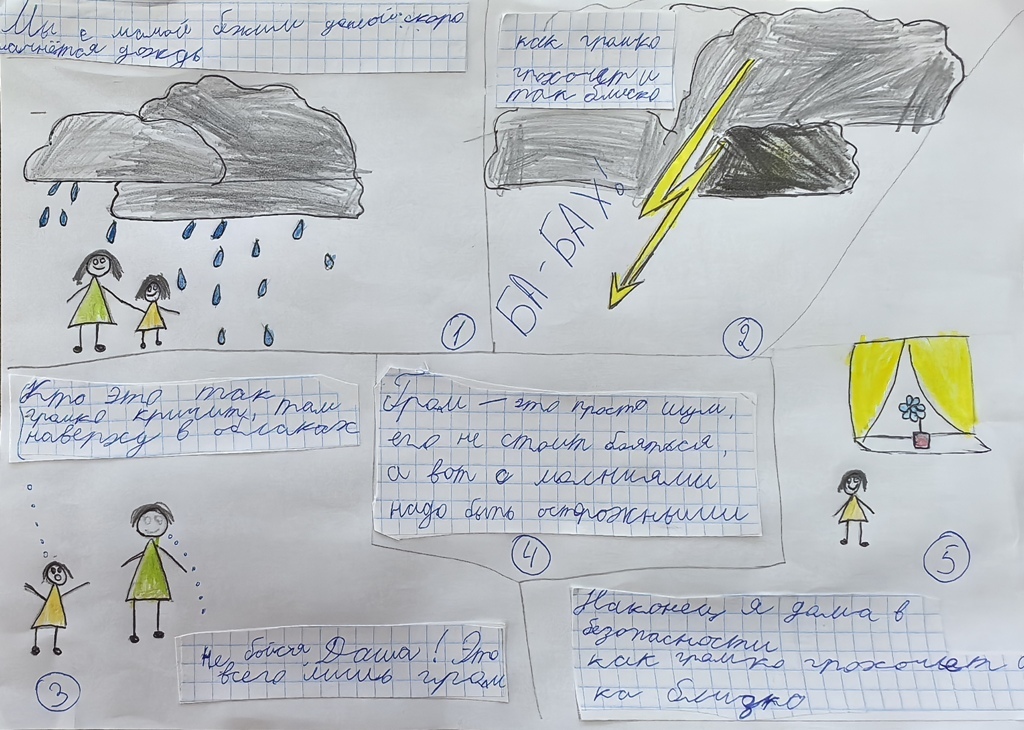 Мы с мамой бежим домой: скоро
начнётся дождь
1
как грамко
грохочет и
так блиско
БА-БАХ!
2
Кто это так
грамко кричит, там
наверху в облаках
Не бойся Даша! Это
всего лишь грам
3
Грам – это просто шум,
его не стоит бояться,
а вот с молниями
надо быть осторожными
4
5
Наконец я дама в
безопасности
как грамко грохочет
ка близко